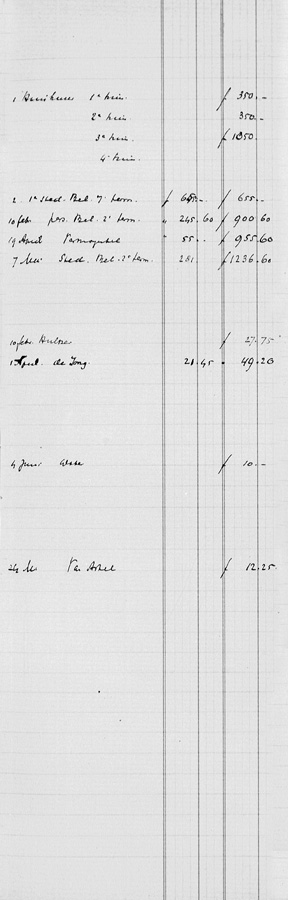 1 Huishuur 1e kwin. ƒ 350.-
2e kwin. 350.-
3e kwin. ƒ 1050.-
4e kwin.
2 1e Sted. Bel. 7 term. ƒ 655.- ƒ 655.-
10 febr. pers. Bel. 2e term. " 245.60 ƒ 900.60
19 Maart " 55.- ƒ 955.60
7 Mei Sted. Bel. 2e term. 281. ƒ 1236.60
10 febr. Hulse ƒ 27.75
1 April. de Jong. 21.45 " 49.20
4 Juni ƒ 10.-
24 Van Arkel ƒ 12.25